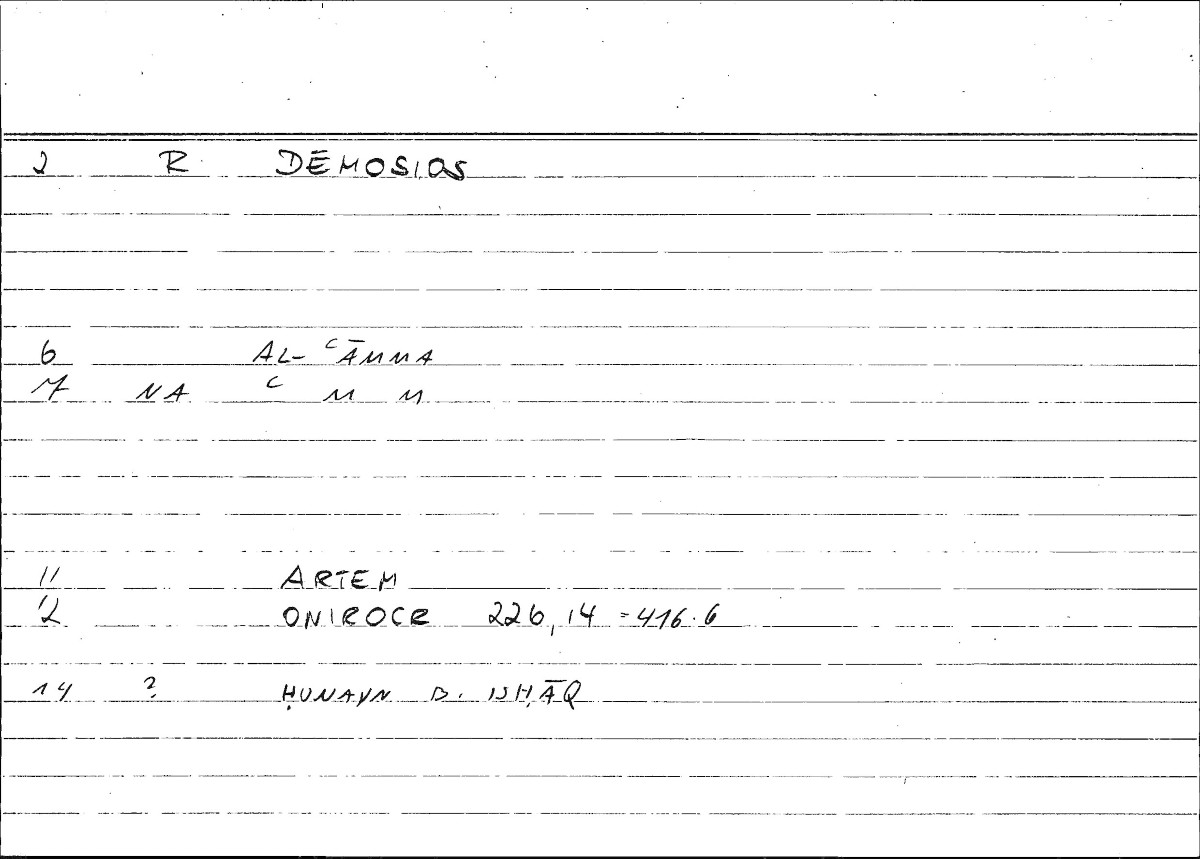 2 R. DĒMOSIOS
6 AL-ʿĀMMA
7 NA ʿ M M
11 ARTEM
12 ONIROCR 226,14 =416.6
14 ? ḤUNAYN B. ISḤĀQ